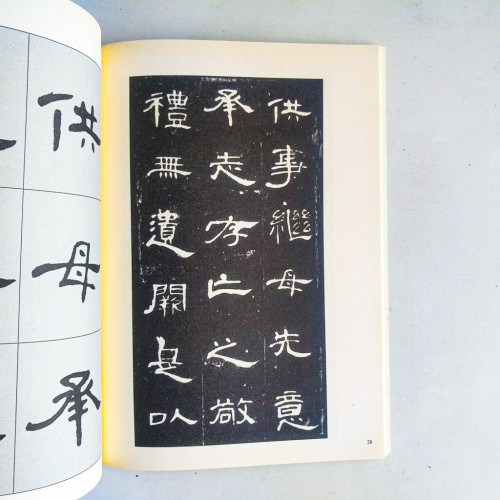 供事繼母先意
承志存亡之敬
禮無遺闕是以
28
供母承